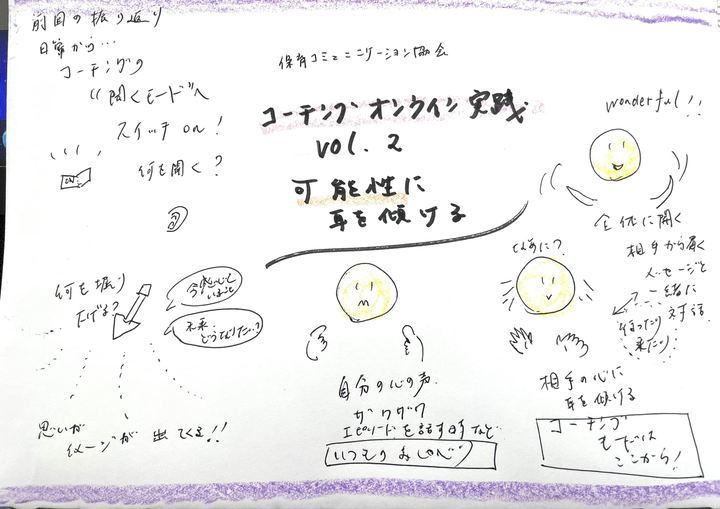 前回の振り返り
日常から…
コーチングの
"聞くモード"へ
スイッチ on!
ON
何を聞く?
保育コミュニケーション協会
コーチング オンライン 実践
vol. 2
可能性に
耳を傾ける
wonderful!!
全体に聞く
相手から届く
メッセージと
一緒に
行ったり 対話
来たり
何を掘り
下げる?
今感じて
いること
未来
どうなりたい?
思いが
イメージが 出てくる!!
自分の心の声
ザワザワ
エピソードを話す時など
いつもの おしゃべり
どんなに?
相手の心に
耳を傾ける
コーチング
モードは
ここから!